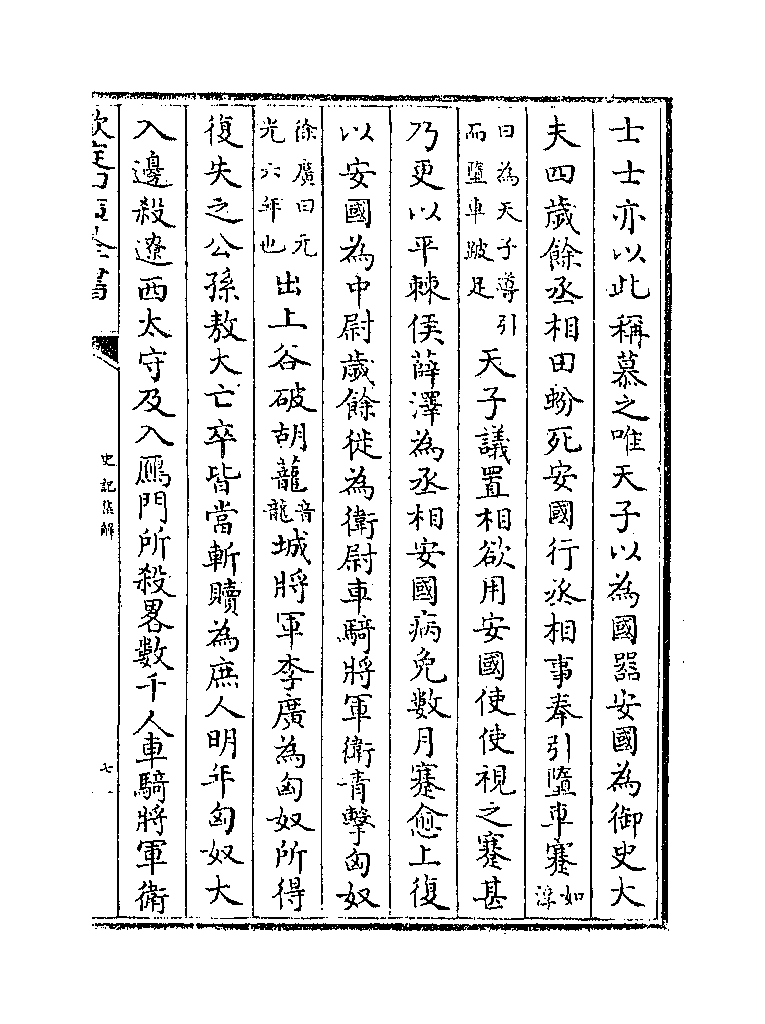 士士亦以此稱慕之唯天子以為國器安國為御史大
夫四歲餘丞相田蚡死安國行丞相事奉引墮車蹇如淳
曰為天子導引而墮車跛足天子議置相欲用安國使使視之蹇甚
乃更以平棘侯薛澤為丞相安國病免數月蹇愈上復
以安國為中尉歲餘徙為衛尉車騎將軍衛青擊匈奴
徐廣曰元光六年也出上谷破胡蘢音龍城將軍李廣為匈奴所得
復失之公孫敖大亡卒皆當斬贖為庶人明年匈奴大
入邊殺遼西太守及入鴈門所殺畧數千人車騎將軍衛
欽定四庫全書
史記集解
七